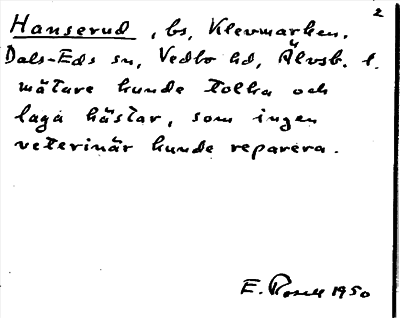 2
Hanserud, bs, Klevmarken,
Dals-Eds sn, Vedbo hd, Älvsb. l.
mätare kunde tolka och
laga hästar, som ingen
veterinär kunde reparera.
E. Rosell 1950